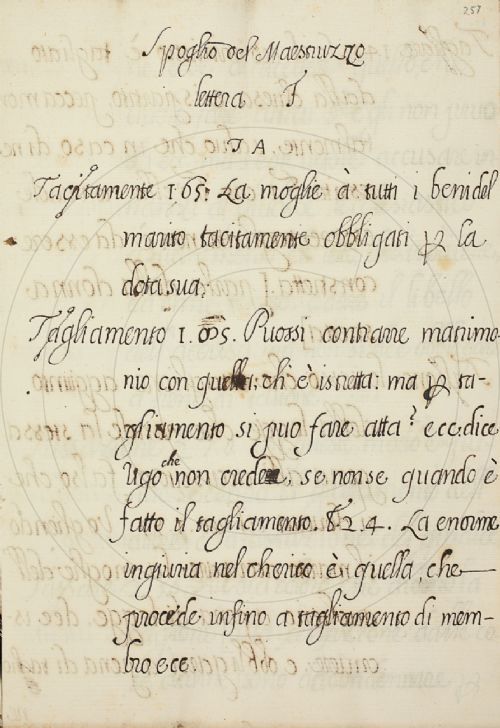 257
Spoglio del Maestruzzo
lettera T
T A
Tacitamente 165: La moglie à tutti i beni del
marito tacitamente obbligati ꝑ la
dota sua;
Tagliamento 1. 5. Puossi contrarre matrimo-
nio con quella: chi è istretta: ma ꝑ ta-
gliamento si puo fare atta? ecc. dice
Ugo che non crede, se non se quando è
fatto il tagliamento. 24. La enorme
ingiuria nel cherico è quella, che
procede infino a tagliamento di mem-
bro ecc